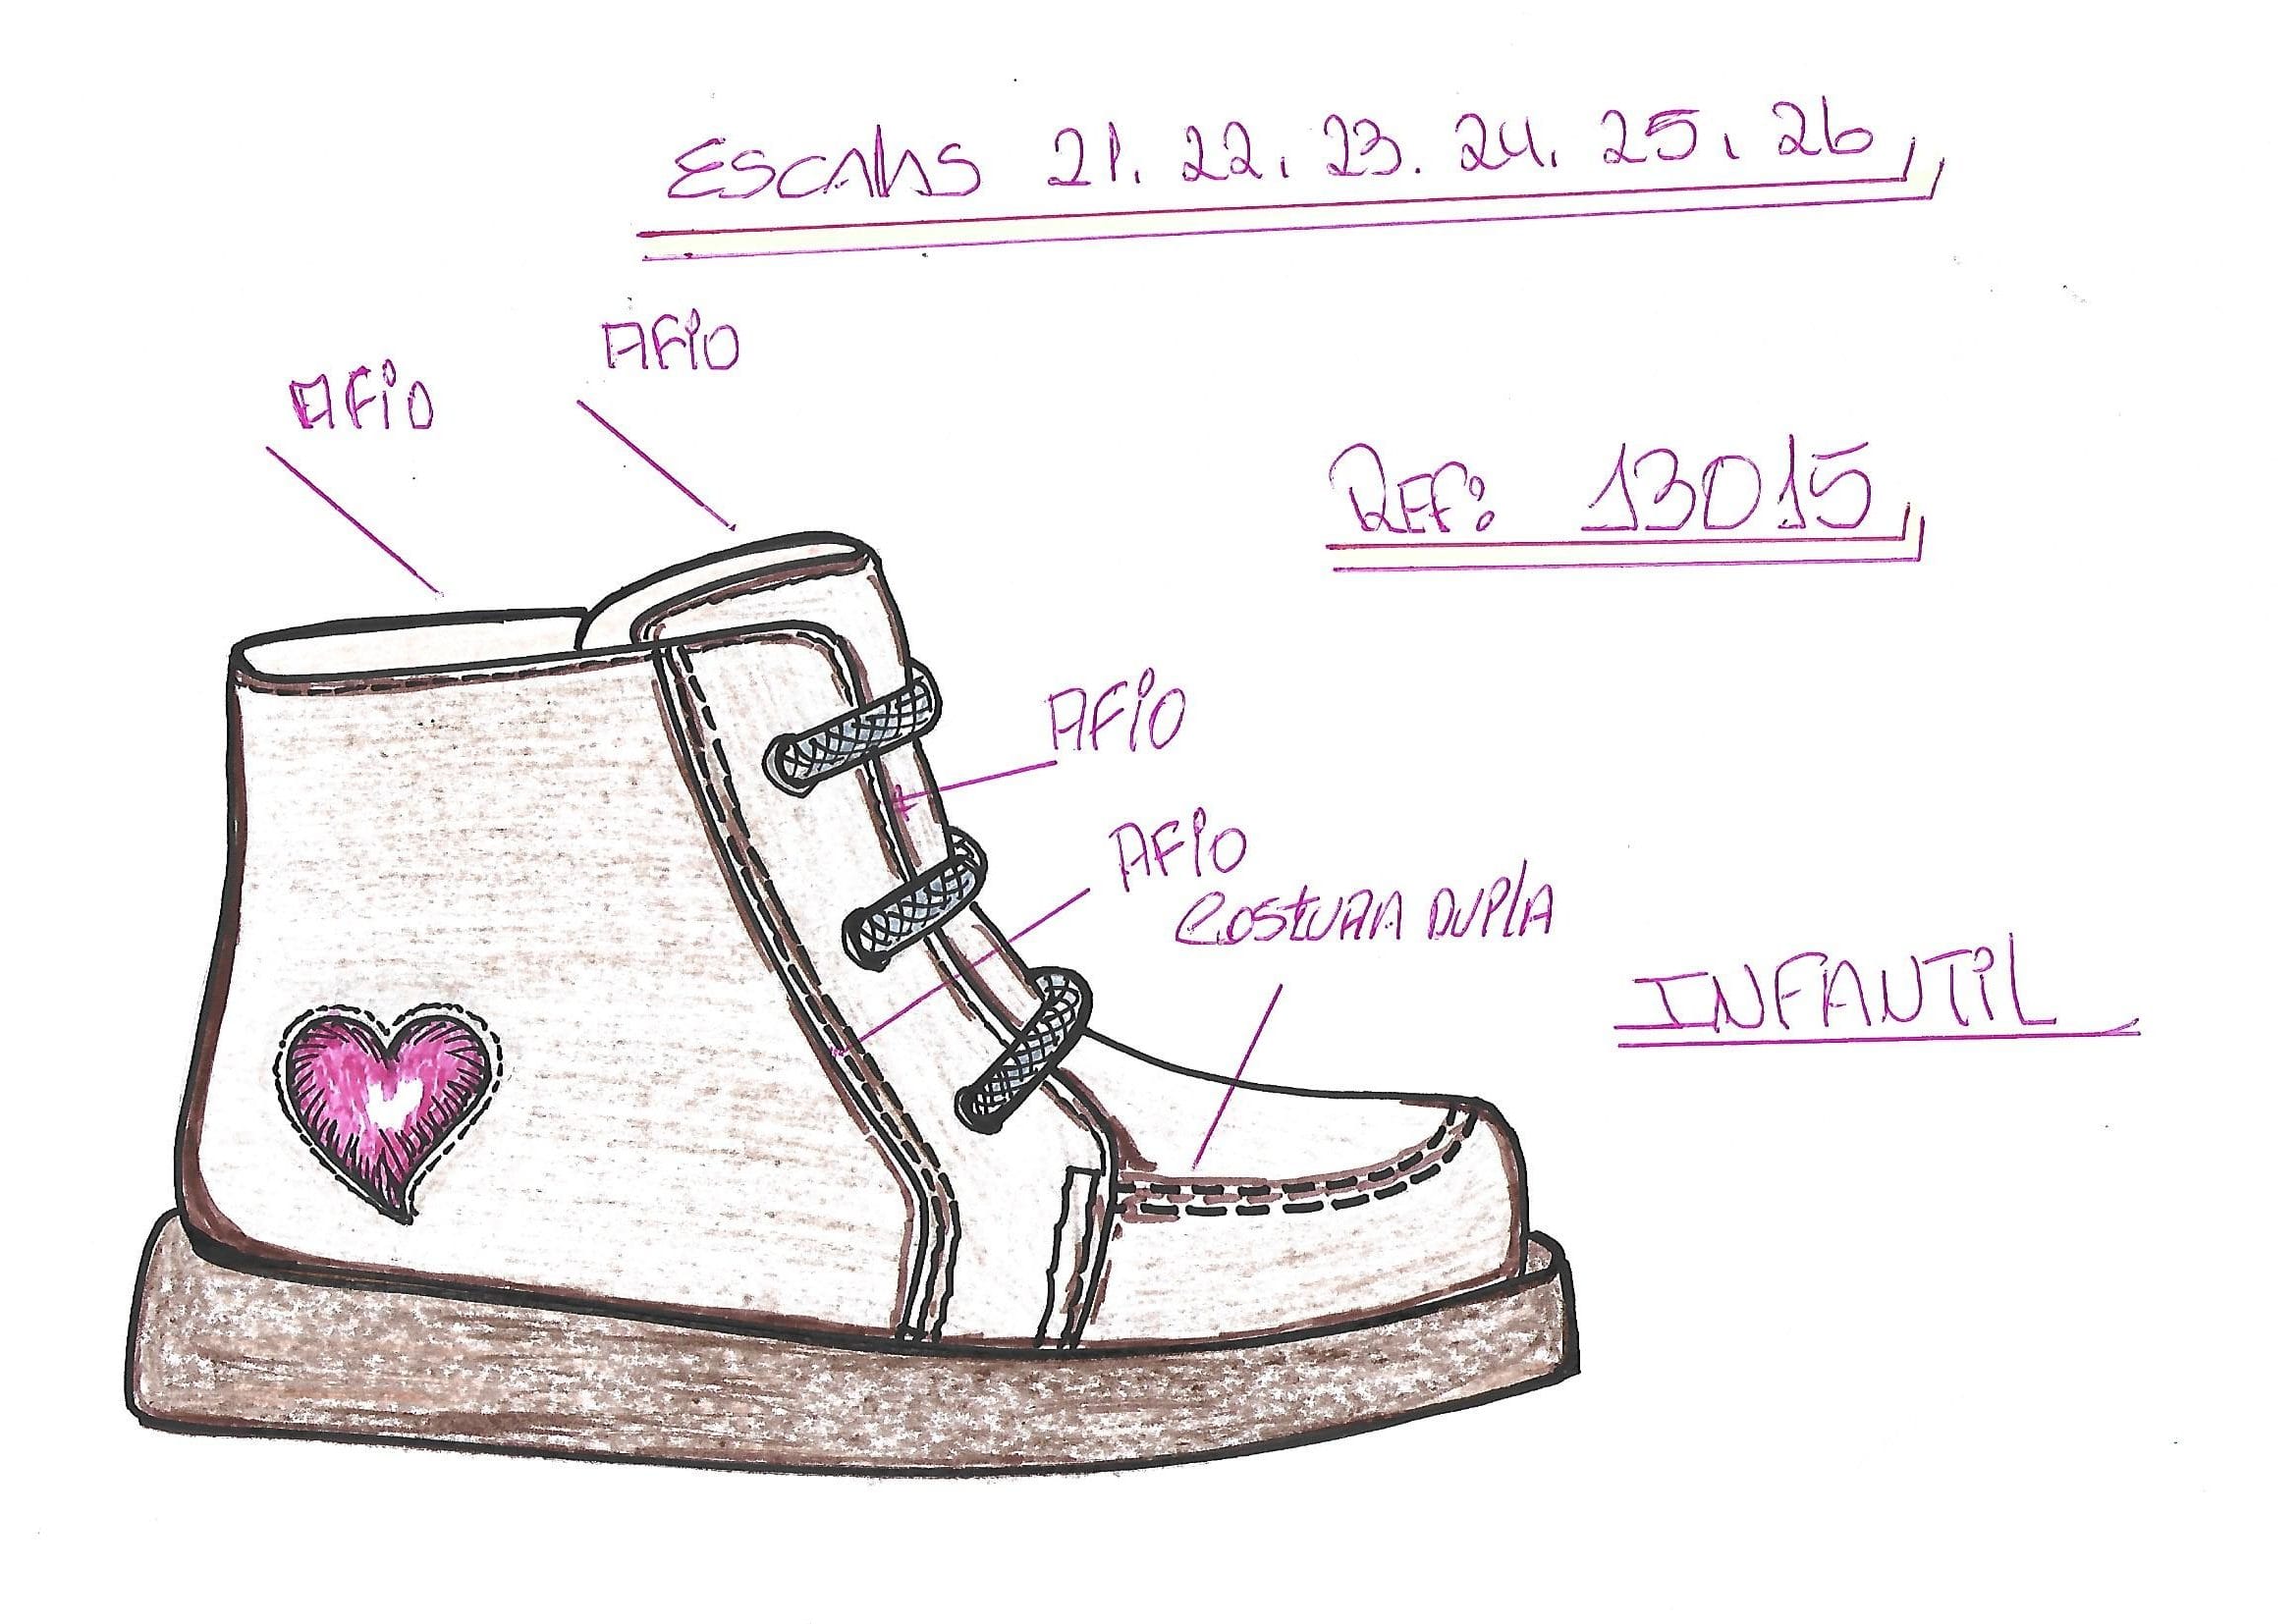 ESCALAS 21. 22. 23. 24. 25. 26
AFIO
AFIO
REF: 13015
AFIO
AFIO
COSTURA DUPLA
INFANTIL